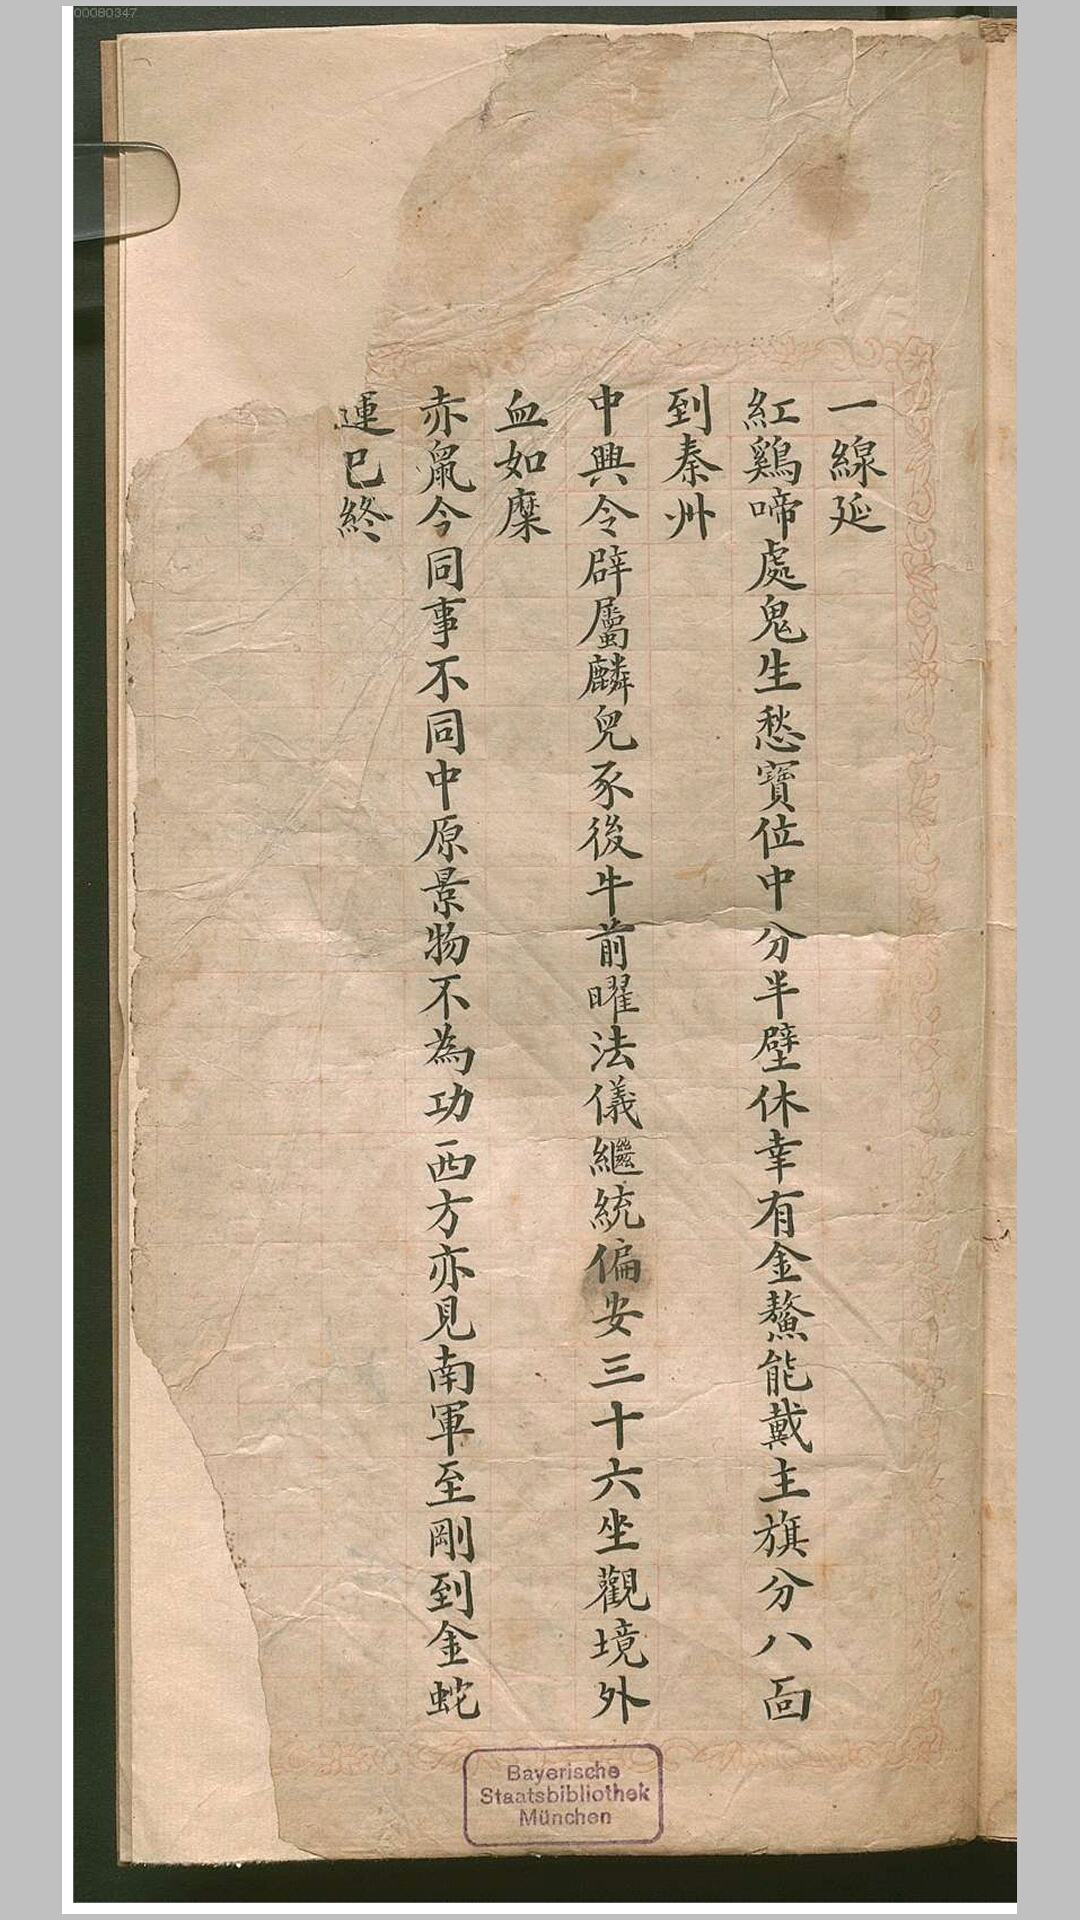 00080347
一線延
紅鷄啼處鬼生愁寶位中分半壁休幸有金鰲能戴主旗分八面
到秦州
中興令辟屬麟兒豕後牛前曜法儀繼統偏安三十六坐觀境外
血如糜
赤鼠今同事不同中原景物不為功西方亦見南軍至剛到金蛇
運已終
Bayerische
Staatsbibliothek
München